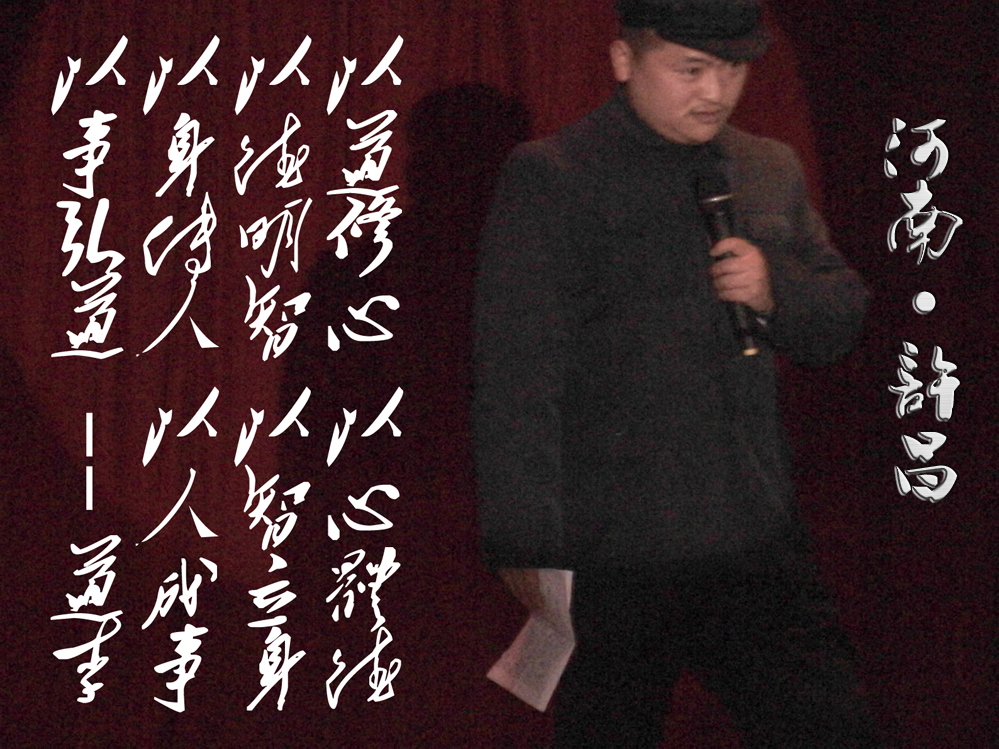 河南·許昌
以道修心
以心體德
以德明智
以智立身
以身傳人
以人成事
以事弘道
——道李